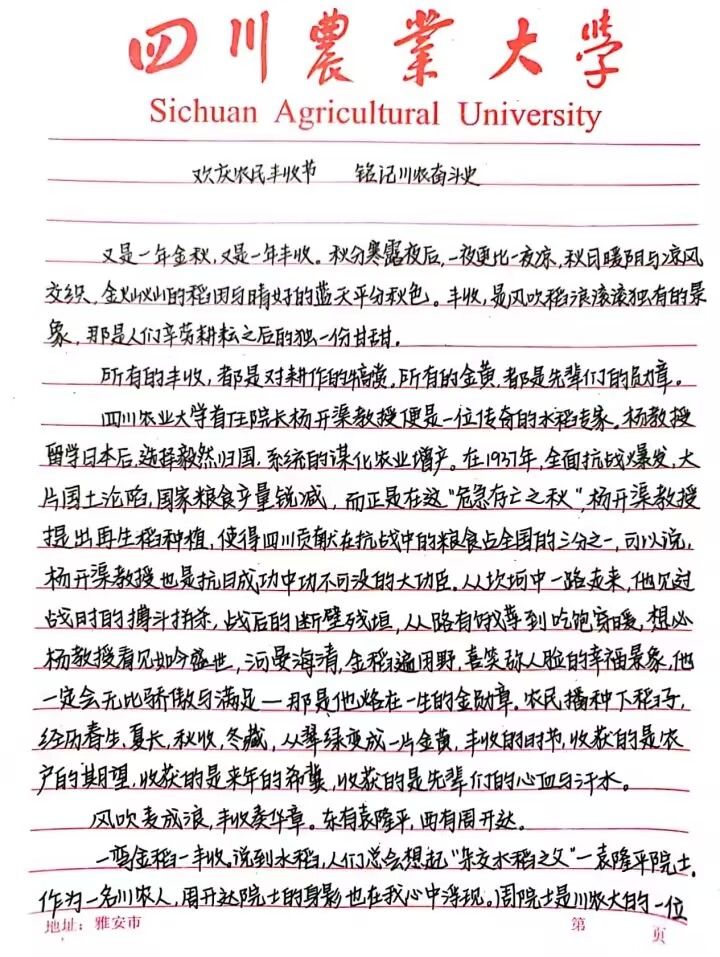 四川農業大學
Sichuan Agricultural University
欢庆农民丰收节 铭记川农奋斗史
又是一年金秋，又是一年丰收。秋分寒露夜后，一夜更比一夜凉，秋日暖阳与凉风
交织，金灿灿的稻田与晴好的蓝天平分秋色。丰收，是风吹稻浪滚滚独有的景
象，那是人们辛劳耕耘之后的独一份甘甜。
所有的丰收，都是对耕作的犒赏。所有的金黄，都是先辈们的勋章。
四川农业大学首任院长杨开渠教授便是一位传奇的水稻专家。杨教授
留学日本后，选择毅然归国，系统的谋化农业增产。在1937年，全面抗战爆发，大
片国土沦陷，国家粮食产量锐减，而正是在这“危急存亡之秋”，杨开渠教授
提出再生稻种植，使得四川贡献在抗战中的粮食占全国的三分之一，可以说，
杨开渠教授也是抗日成功中功不可没的大功臣。从坎坷中一路走来，他见过
战时的搏斗拼杀，战后的断壁残垣，从路有饿莩到吃饱穿暖，想必
杨教授看见如今盛世，河晏海清，金稻遍田野，喜笑弥人脸的幸福景象，他
一定会无比骄傲与满足—那是他烙在一生的金勋章。农民播种下稻子，
经历春生，夏长，秋收，冬藏，从翠绿变成一片金黄，丰收的时节，收获的是农
户的期望，收获的是来年的希冀，收获的是先辈们的心血与汗水。
风吹麦成浪，丰收奏华章。东有袁隆平，西有周开达。
一弯金稻一丰收。说到水稻，人们总会想起“杂交水稻之父”—袁隆平院士。
作为一名川农人，周开达院士的身影也在我心中浮现。周院士是川农大的一位
地址：雅安市 第 页